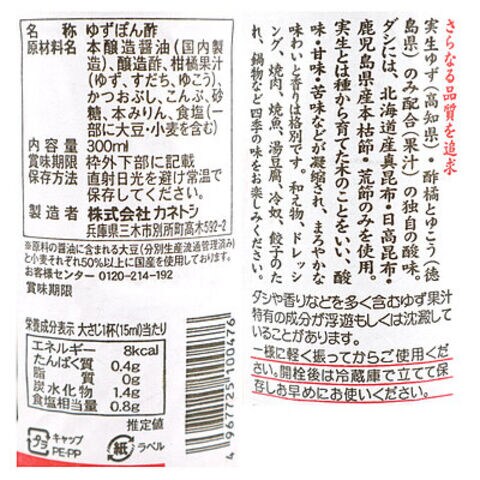 名称 ゆずぽん酢
原材料名 本醸造醤油(国内製
造)、醸造酢、柑橘果汁
(ゆず、すだち、ゆこう)、
かつおぶし、こんぶ、砂
糖、本みりん、食塩(一
部に大豆・小麦を含む)
内容量 300ml
賞味期限 枠外下部に記載
保存方法 直射日光を避け常温で
保存してください。
製造者 株式会社カネトシ
兵庫県三木市別所町高木592-2
※原料の醤油に含まれる大豆(分別生産流通管理済み)
と小麦それぞれ50%以上に国産を使用しています。
お客様センター 0120-214-192
賞味期限
栄養成分表示 大さじ1杯(15ml)当たり
エネルギー 8kcal
たんぱく質 0.4g
脂質 0g
炭水化物 1.4g
食塩相当量 0.8g
推定値
プラ
キャップ
PE・PP
紙
ラベル
4 967725 100476
さらなる品質を追求
実生ゆず(高知県)・酢橘とゆこう(徳
島県)のみ配合(果汁)の独自の酸味。
ダシには、北海道産真昆布・日高昆布・
鹿児島県産本枯節・荒節のみを使用。
実生とは種から育てた木のことをいい、酸
味・甘味・苦味などが凝縮され、まろやかな
味わいと香りは格別です。和え物、ドレッシ
ング、焼肉、焼魚、湯豆腐、冷奴、餃子のた
れ、鍋物など四季の味をお楽しみください。
ダシや香りなどを多く含むゆず果汁
特有の成分が浮遊もしくは沈澱して
いることがあります。
一様に軽く振ってからご使用くだ
さい。開栓後は冷蔵庫で立てて保
存しお早めにお使いください。